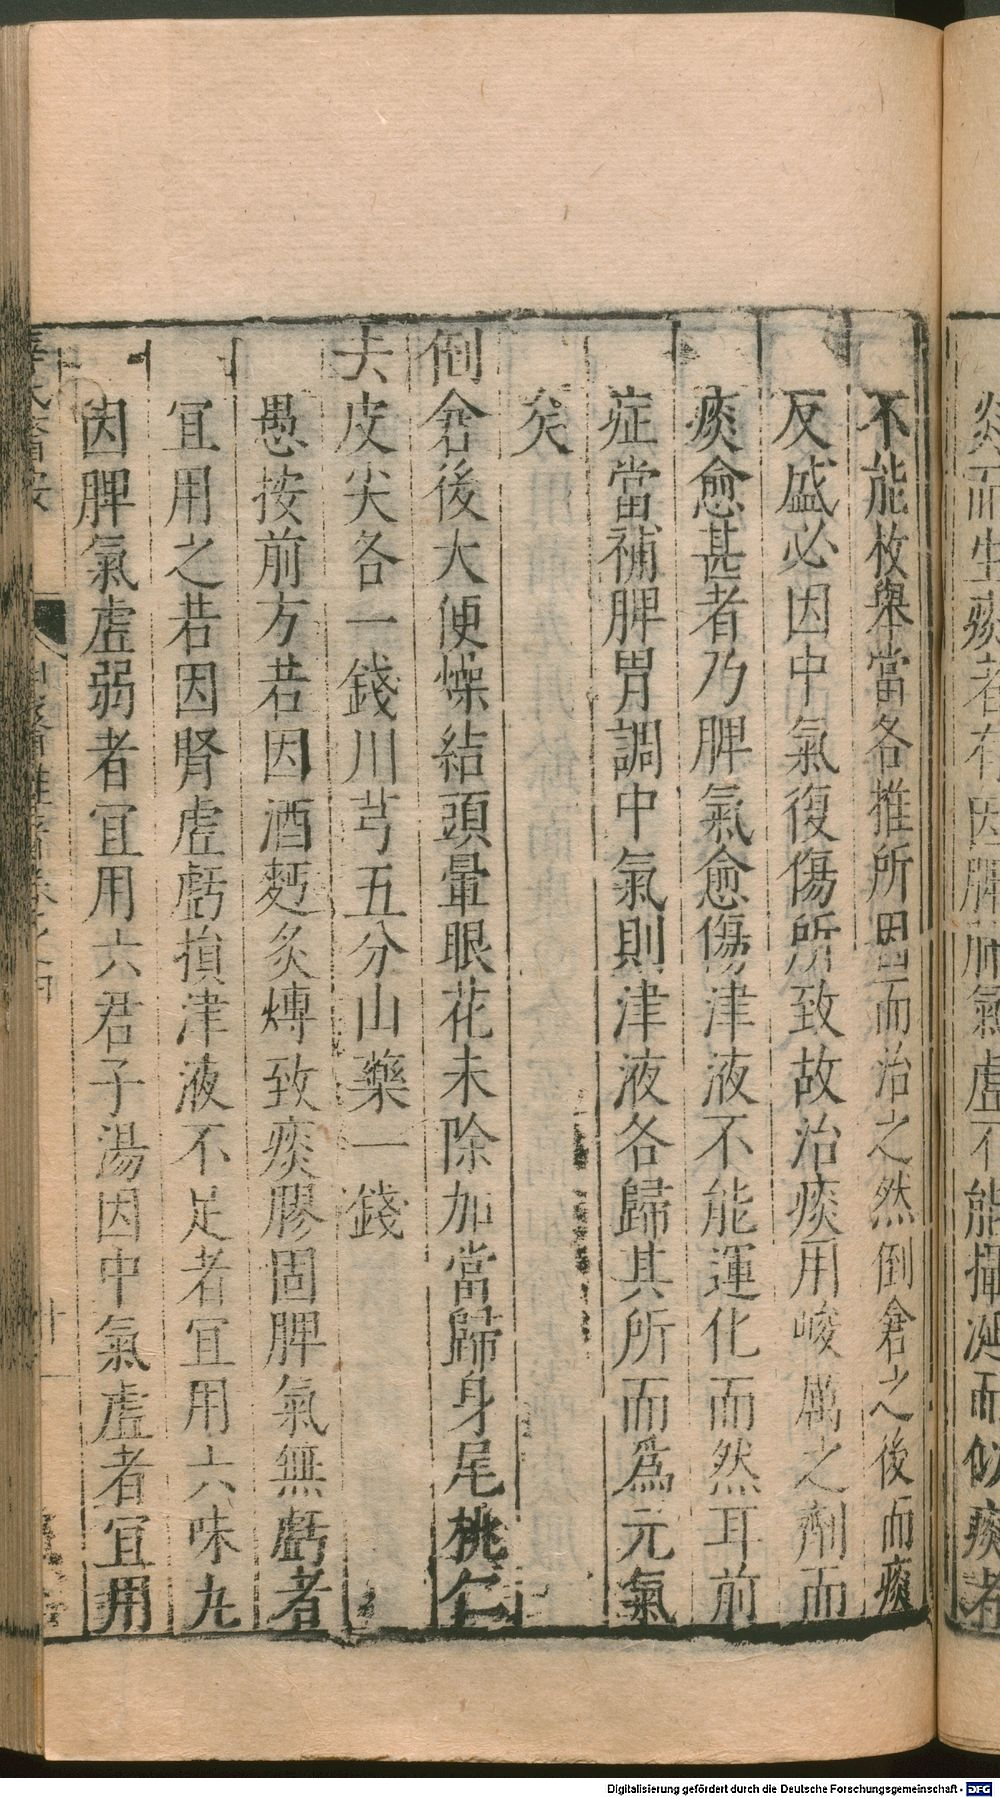 不能枚舉當各推所因而治之然倒倉之後而痰
反盛必因中氣復傷所致故治痰用峻厲之劑而
痰愈甚者乃脾氣愈傷津液不能運化而然耳前
症當補脾胃調中氣則津液各歸其所而爲元氣
矣
倒倉後大便燥結頭暈眼花未除加當歸身尾桃仁
去皮尖各一錢川芎五分山藥一錢
愚按前方若因酒麪炙煿致痰膠固脾氣無虧者
宜用之若因腎虛虧損津液不足者宜用六味丸
因脾氣虛弱者宜用六君子湯因中氣虛者宜用
Digitalisierung gefördert durch die Deutsche Forschungsgemeinschaft - DFG